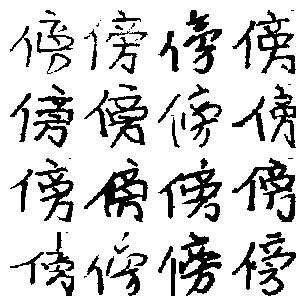 傍傍傍傍
傍傍傍傍
傍傍傍傍
傍傍傍傍